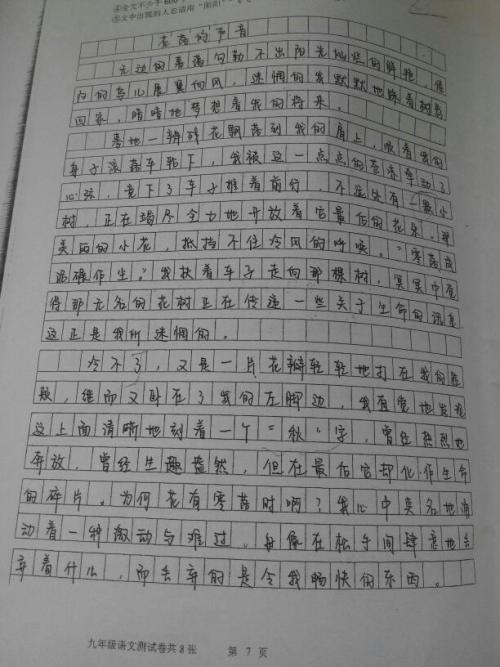 ④全文不少于600
⑤文中出现的人名请用“阳阳”
花落的声音
无边的暮霭勾勒不出阳光灿烂的鲜艳，傍
的鸟儿展翼向风，迷惘的我默默地踏着树影
回家，暗暗地梦想着我的将来。
蓦地一瓣残花飘落到我的肩上，顺着我的
身子滚落车轮下，我被这一点点的青春牵动了
心弦，走下了车子推着前行，不远处有一颗小
树，正在竭尽全力地开放着它最后的花朵。那
美丽的小花，抵挡不住冷风的呼唤。“零落成
泥碾作尘。”我扶着车子走向那棵树，冥冥中觉
得那无名的花树正在传递一些关于生命的讯息
这正是我所迷惘的。
冷不了，又是一片花瓣轻轻地打在我的脸
颊，继而又卧在了我的左脚边，我有意地发现
这上面清晰地刻着一个“秋”字，曾经热烈地
奔放，曾经生趣盎然，但在最后它却化作生命
的碎片。为何花有零落时啊？我心中莫名地涌
动着一种激动与难过。好像在松手间肆意地丢
弃着什么，而丢弃的是令我畅快的东西。
九年级语文测试卷共8张 第 7 页